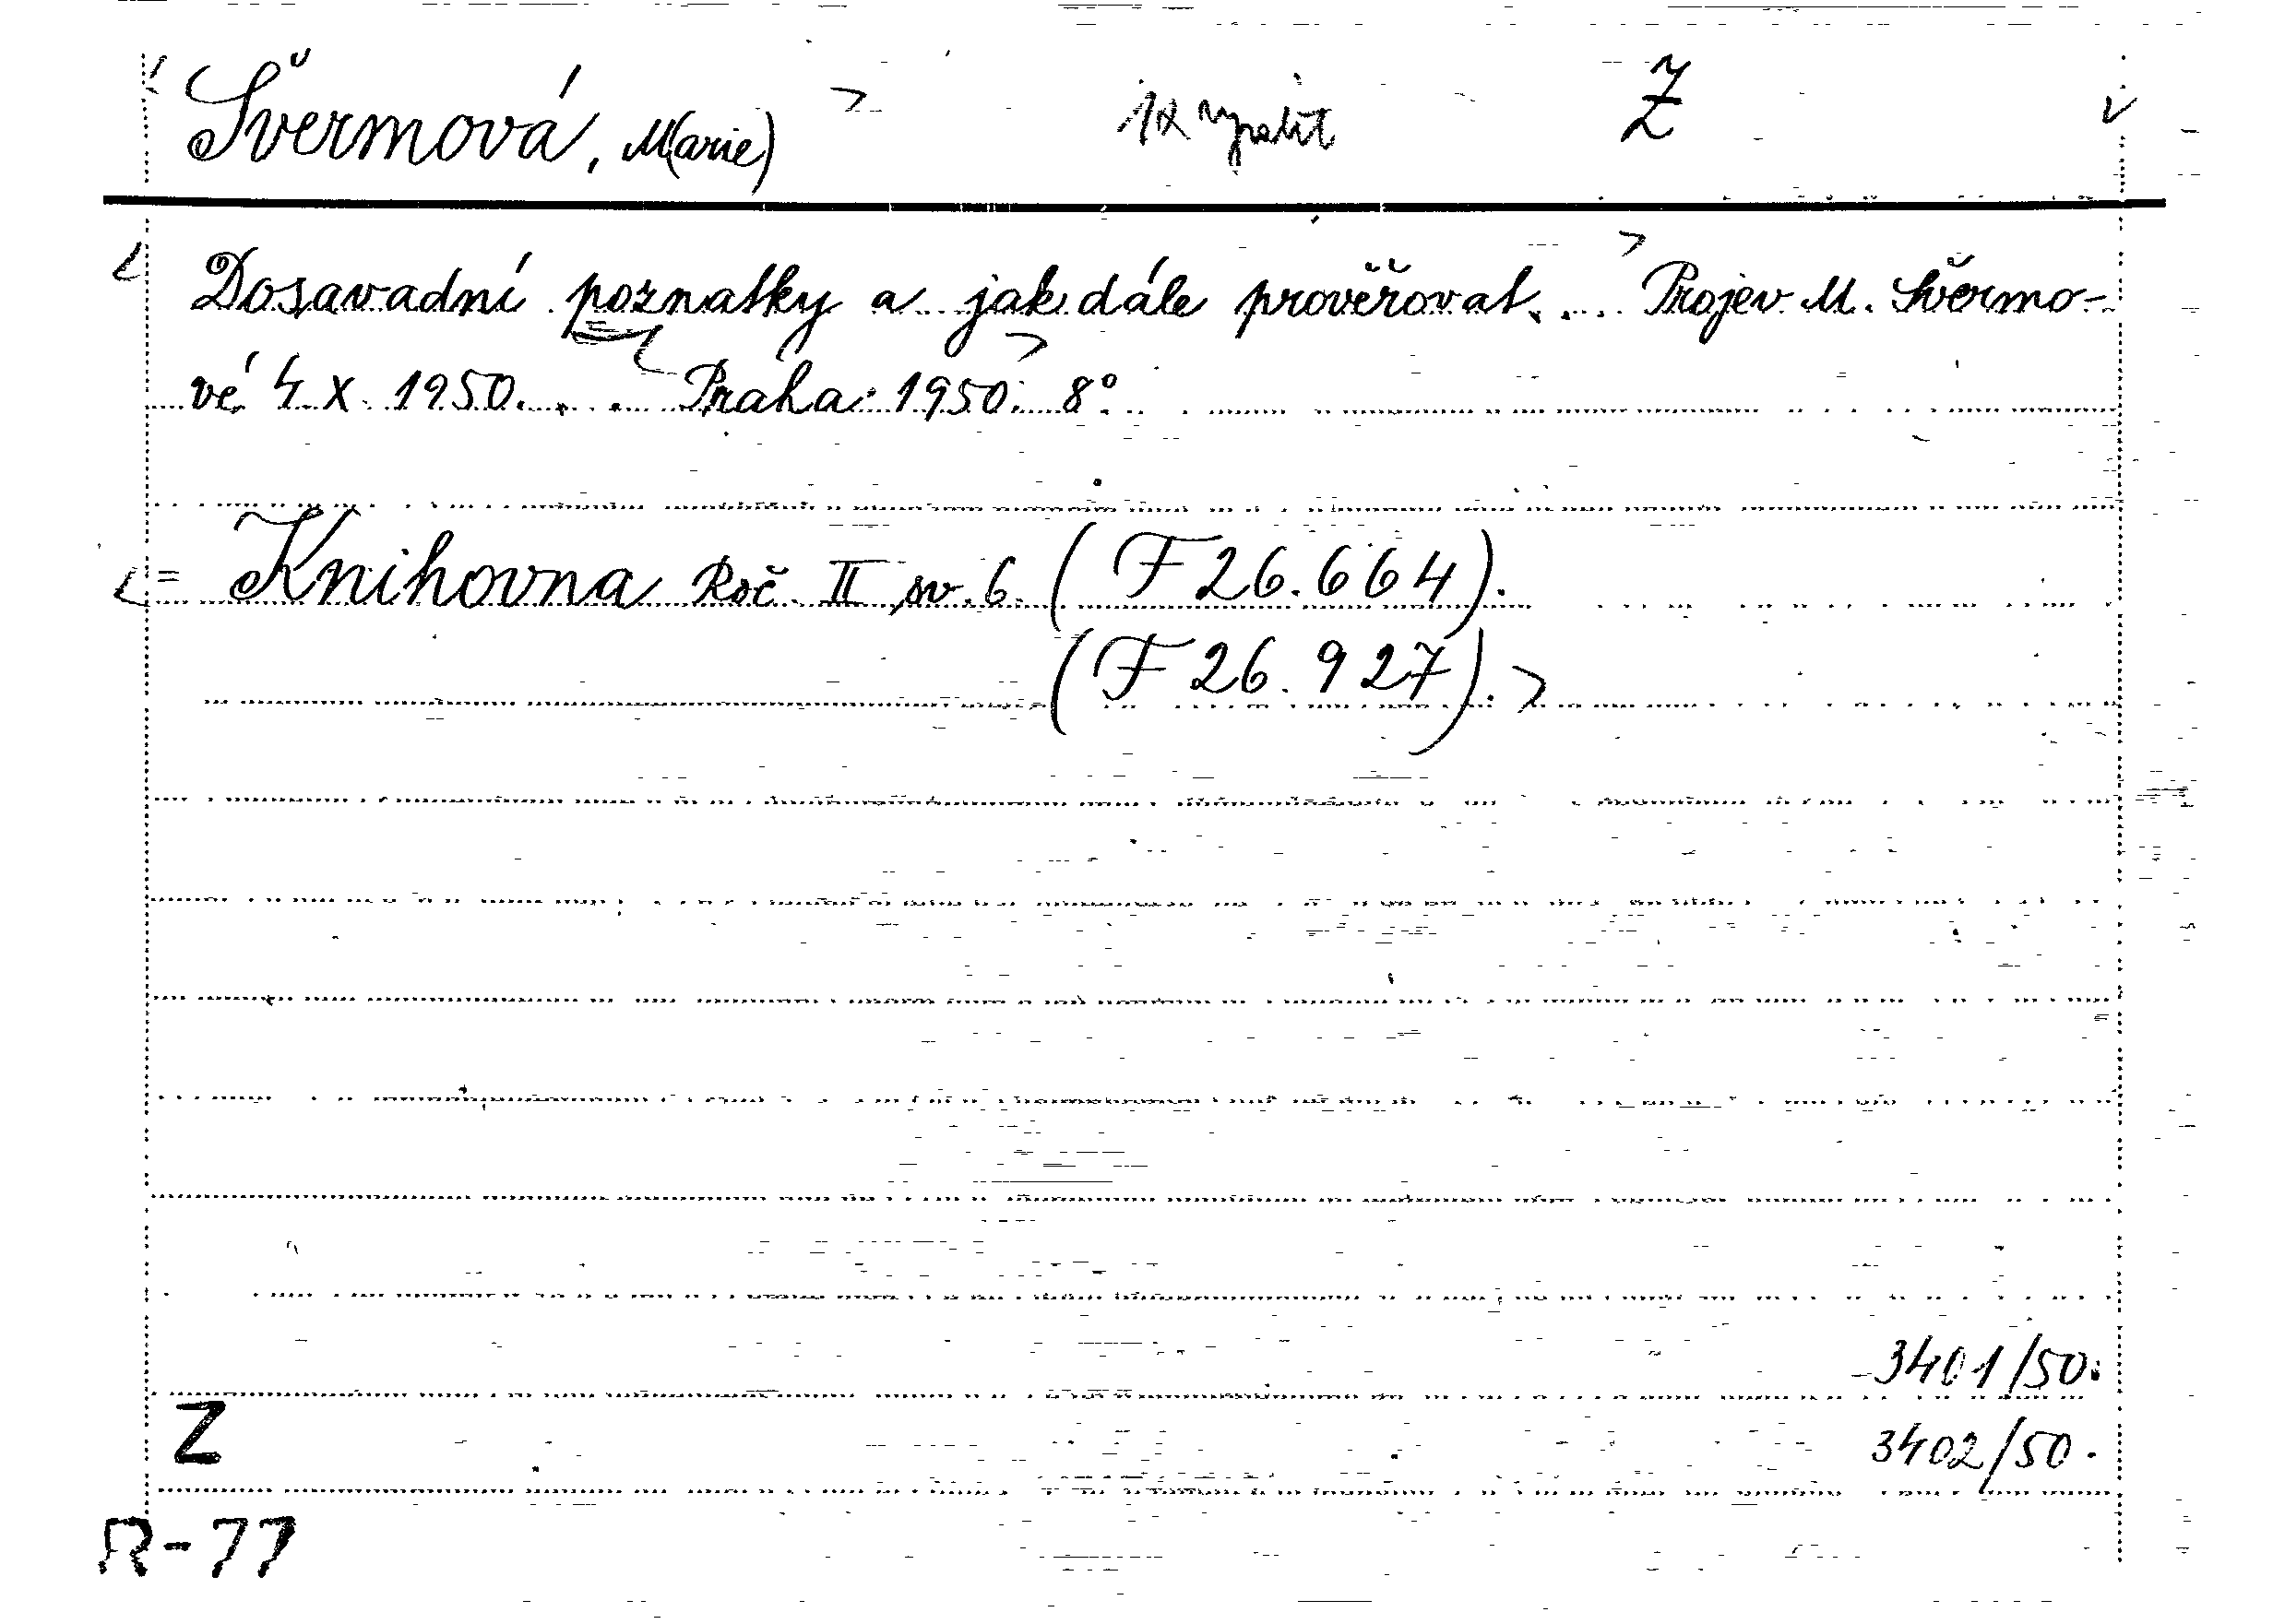 Švermová, M(arie) 1x Z
Dosavadní poznatky a jak dále prověřovat. ... Projev M. Švermo-
vé 4. X. 1950. . . Praha 1950. 8°.
= Knihovna Roč. II, sv. 6. (F 26.664).
(F 26.927).
3401/50.
Z 3402/50.
R-77